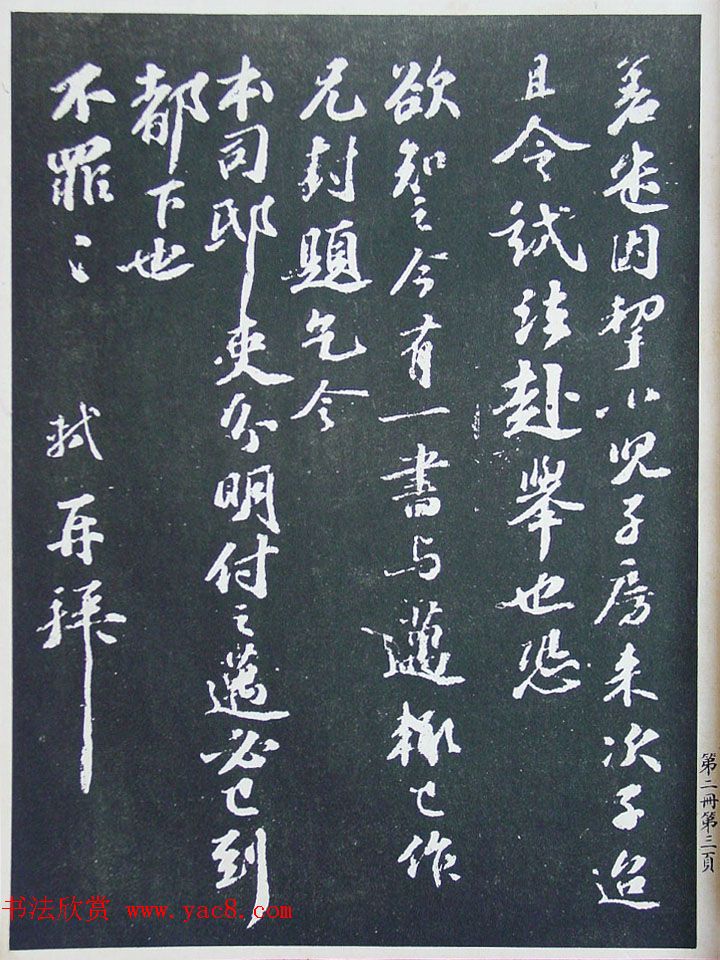 差遣因挈小兒子房来次子迨
且令試法赴舉也恐
欲知之今有一書与邁輒已作
兄封題乞令
本司邸吏分明付之邁必已到
都下也
不罪〻
軾再拜
第二冊第三頁
书法欣赏 www.yac8.com